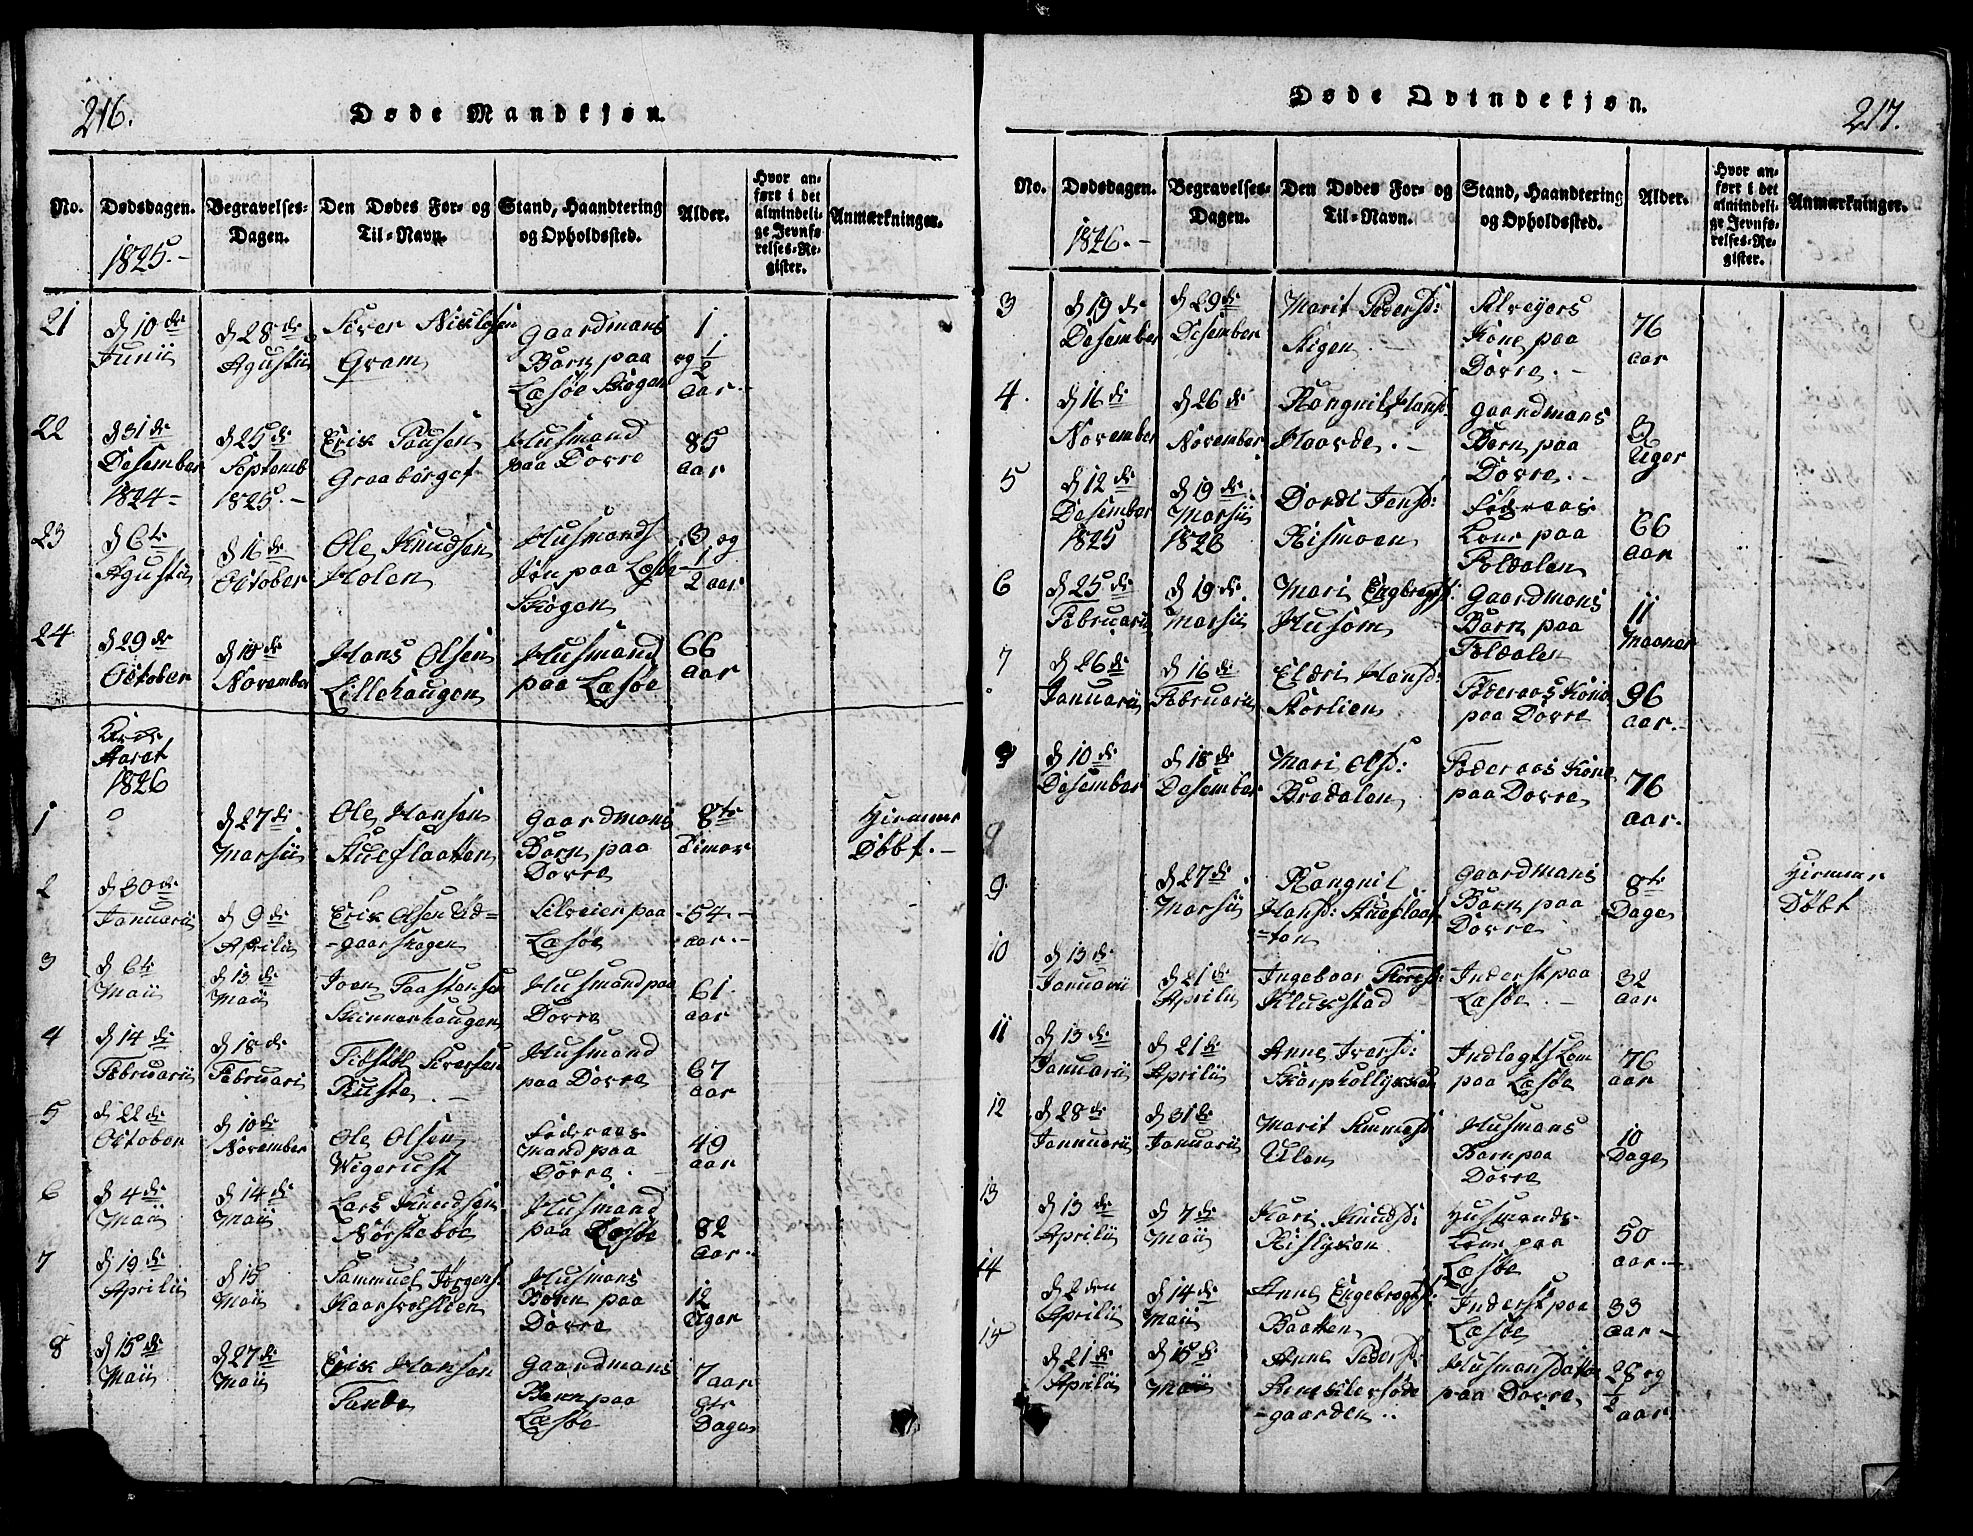 216.
Døde Mandkjøn.
No.
Dødsdagen.
1825.-
Begravelses-
Dagen.
Den Dødes For- og
Til-Navn.
Stand, Haandtering
og Opholdssted.
Alder.
Hvor an-
ført i det
almindeli-
ge Jevnfø-
relses-Re-
gister.
Anmærkninger.
21
d 10 de
Junii
d 28 de
Agustii
Siver
Gram
Gaardmans
Barn paa
Læsøe Skogen
1
og 1/2
aar.-
22
d 31 de
Desember
1824-
d 25 de
Septemb
1825.-
Erik Pousen
Graaborget
Husmand
paa Dovre
85
aar
23
d 6te
Agustii
d 16 de
October
Ole Knudsen
Holen
Husmands
Søn paa Læsøe
Skogen
3 og
1/2 aar
24
d 29 de
October
d de
November
Hans Olsen
Lillehaugen
Husmand
paa Læsøe
66
aar
Aaret
1826
1
0
d 27 de
Marsii
Ole Hansen
Stueflaatten
Gaardmans
Barn paa
Dovre
8te
Timer
Hiemme
Døbt.-
2
d 30 de
Januarii
d 9 de
Aprilii
Erik Olsen Ud=
-gaarskogen
paa
Læsøe
-54.-
aar.-
3
d 6te
Maii
d 13 de
Maii
Joen
Skinnerhaugen
Husmand paa
Dovre
61
aar
4
d 14 de
Februarii
d 18 de
Februari
Siversen
Rusten
Husmand
paa Dovre
67
aar
5
d 22 de
October
d 10 de
November
Ole Olsen
Wigerust
Føderaas
mand paa
Dovre
49
aar
6
d 4 de
Maii
d 14 de
Maii
Lars Knudsen
Norsteboe
Husmand
paa Læsøe
82
aar.
7
d 19 de
Aprilii
d 15
Maii
Sammuel Jørgens:
Husmans
Barn paa
Dovre
12
Uger
8
d 15 de
Maii
d 27 de
Maii
Erik Hansen
Sande
Gaardmans
Barn paa
Læsøe
7 aar
8te
Dage
Døde Qvindekjøn.
217.
No.
Dødsdagen.
1826.-
Begravelses-
Dagen.
Den Dødes For- og
Til-Navn.
Stand, Haandtering
og Opholdssted.
Alder.
Hvor an-
ført i det
almindeli-
ge Jevnfø-
relses-Re-
gister.
Anmærkninger.
3
d 19 de
Desember
d 29 de
Desember
Marit Pedersd:
Stigen
Selveyers
Kone paa
Dovre.-
76
aar
4.
d 16 de
November
d 26 de
November
Rangnil Hansd:
Haarde.-
Gaardmans
Barn paa
Dovre.-
3
Uger
5
d 12 de
Desember
1825
d 19 de.
Marsii
1826
Dordi Jensd:
Rismoen
Føderaas
Kone paa
Foldalen
66
aar
6
d 25 de
Februarii
d 19 de.
Marsii
Mari Engbregtsd:
Husom
Gaardmans
Barn paa
Foldalen
11
Maaner
7
d 26 de
Januarii
d 16 de
Februarii
Eldri Hansd:
Storlien
Føderaas Kone
paa Dovre
96
aar.-
d 10 de
Desember
d 18 de
Desember
Mari Olsd:
Bredalen
Føderaas Kone
paa Dovre
76
aar.
9
9.
d 27 de
Marsii
Rangnil
Hansd: Stueflaat
=ten
Gaardmans
Barn paa
Dovre
8te
Dage
Hiemme
Døbt
10
d 13 de
Januarii
d 21 de
Aprilii
Ingeboer
Klukstad
Inderst paa
Læsøe.-
32
aar
11
d 13 de
Januarii
d 21 de
Aprilii
Anne Iversd:
Indlagts Kone
paa Læsøe
76
aar
12
d 28 de
Januarii
d 31 de
Januarii
Marit Simmensd
Ulen
Husmans
Barn paa
Dovre
10
Dage
13
d 13 de
Aprilii
d 7 de
Maii
Kari Knudsd:
Husmands
Kone paa
Læsøe
50
aar.-
14
d 2den
Aprilii
d 14 de
Maii
Anne Engebregtsd:
Baatten
Inderst paa
Læsøe
33
aar-
15
d 21 de
Aprilii
d 15 de
Maii
Anne Pedersd:
-gaarden..
Husmansdatter
paa Dovre
28 og
1/2
aar.